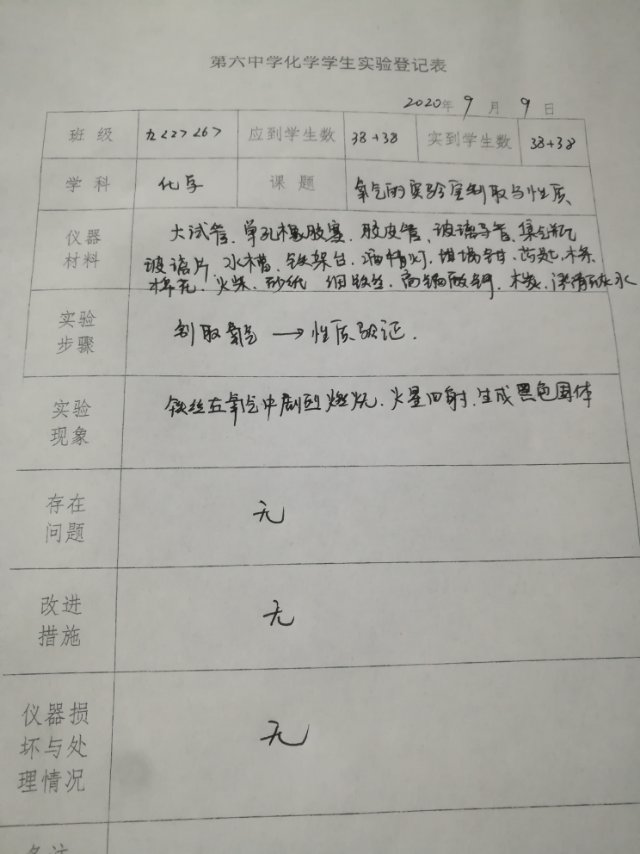 第六中学化学学生实验登记表
2020年 9 月 9 日
班 级 九<2><6> 应到学生数 38+38 实到学生数 38+38
学 科 化学 课 题 氧气的实验室制取与性质、
仪器材料 大试管、单孔橡胶塞、胶皮管、玻璃导管、集气瓶
玻璃片 水槽、铁架台、酒精灯、坩埚钳、药匙、
棉花、火柴、砂纸 细铁丝、高锰酸钾、木炭、澄清石灰水
实验
步骤
制取氧气 → 性质验证.
实验
现象
铁丝在氧气中剧烈燃烧、火星四射、生成黑色固体
存在
问题
无
改进
措施
无
仪器损
坏与处
理情况
无
备注